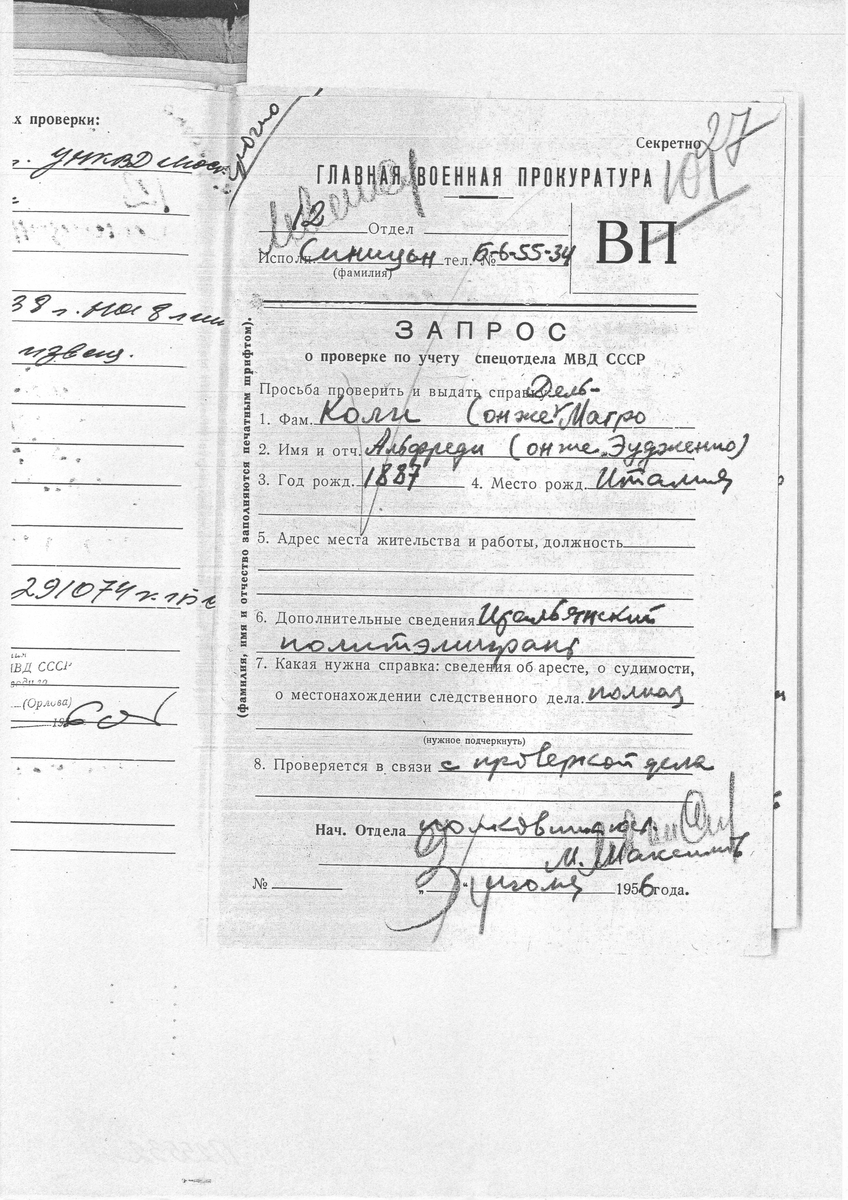 х проверки:
УНКВД Моск
38 г. на 8 лет
извещ.
291074
МВД СССР
(Орлова)
срочно
Секретно
27
101
ГЛАВНАЯ ВОЕННАЯ ПРОКУРАТУРА
12 Отдел
ВП
Исполн. Синицын тел. № Б-6-55-34
(фамилия)
ЗАПРОС
о проверке по учету спецотдела МВД СССР
(фамилия, имя и отчество заполняются печатным шрифтом).
Просьба проверить и выдать справку Дель-
1. Фам. Колли (он же Матро
2. Имя и отч. Альфреди (он же Эудженио)
3. Год рожд. 1887 4. Место рожд. Италия
5. Адрес места жительства и работы, должность
6. Дополнительные сведения Итальянский
политэмигрант
7. Какая нужна справка: сведения об аресте, о судимости,
о местонахождении следственного дела.
(нужное подчеркнуть)
8. Проверяется в связи с проверкой дела
Нач. Отдела полковник юст.
М. Максимов
№ „ 3 “ июля 1956 года.